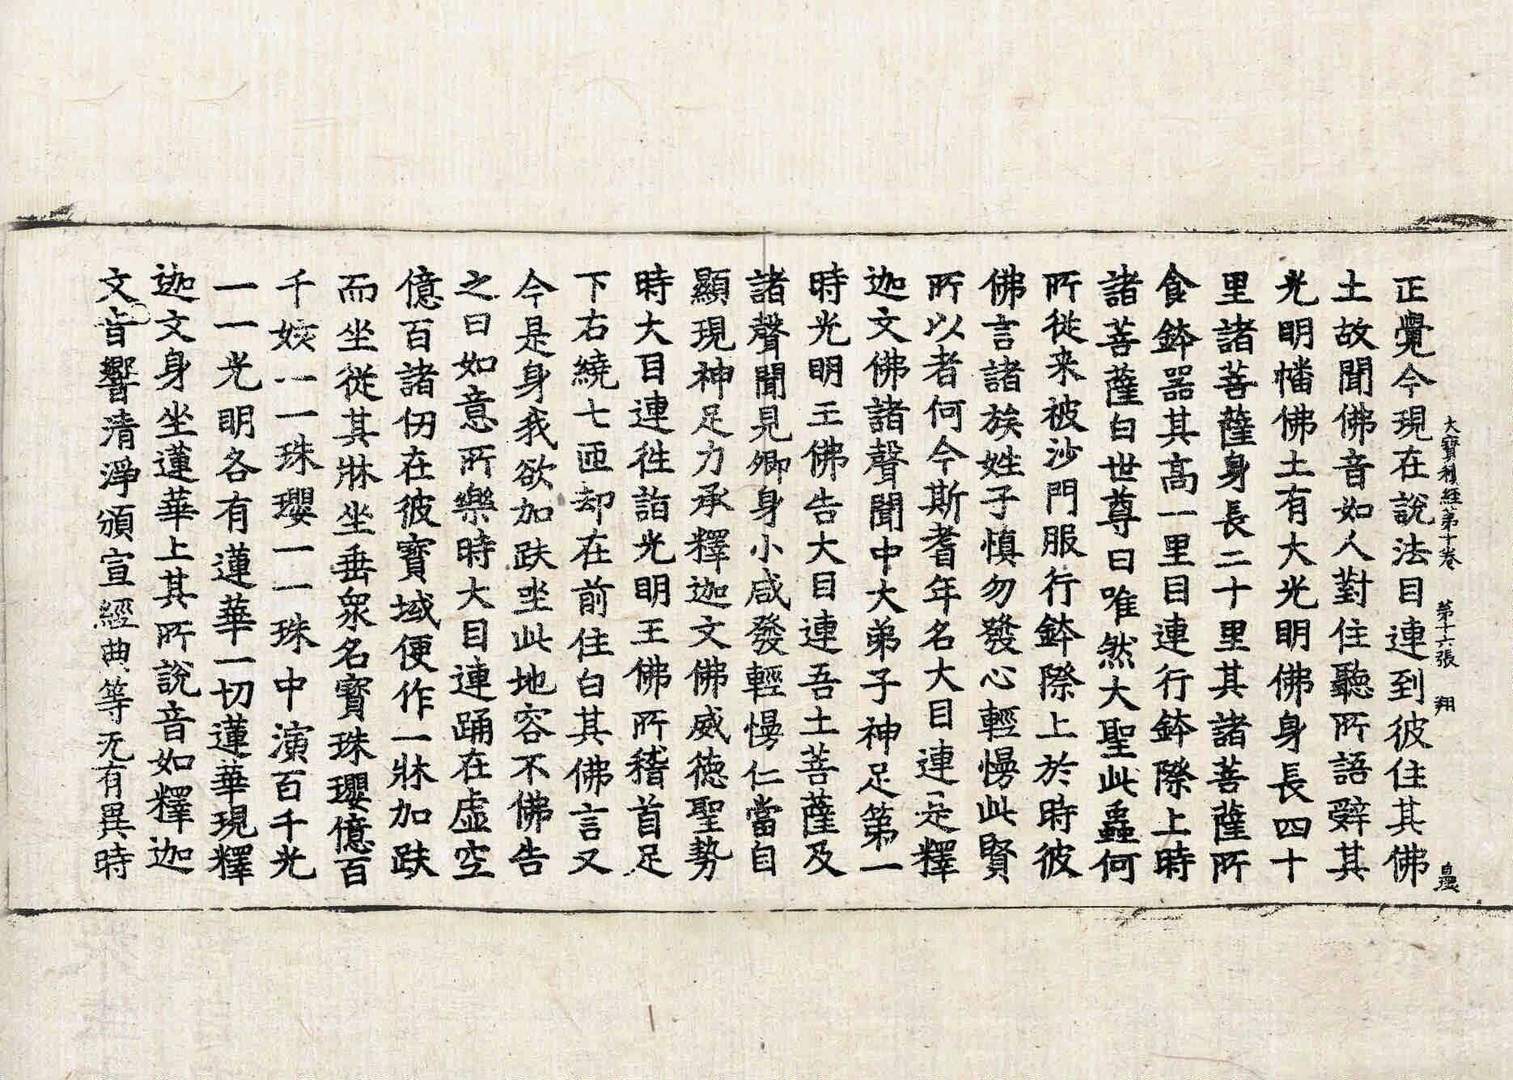 大寶積經第十卷　第十六張　翔
正覺今現在說法目連到彼住其佛
土故聞佛音如人對住聽所語辭其
光明幡佛土有大光明佛身長四十
里諸菩薩身長二十里其諸菩薩所
食鉢器其高一里目連行鉢際上時
諸菩薩白世尊曰唯然大聖此蟲何
所從来被沙門服行鉢際上於時彼
佛言諸族姓子慎勿發心輕慢此賢
所以者何今斯耆年名大目連是釋
迦文佛諸聲聞中大弟子神足第一
時光明王佛告大目連吾土菩薩及
諸聲聞見卿身小咸發輕慢仁當自
顯現神足力承釋迦文佛威德聖勢
時大目連往詣光明王佛所稽首足
下右繞七迊却在前住白其佛言又
今是身我欲加趺坐此地容不佛告
之曰如意所樂時大目連踊在虛空
億百諸仞在彼寶域便作一牀加趺
而坐從其牀坐垂衆名寶珠瓔億百
千姟一一珠瓔一一珠中演百千光
一一光明各有蓮華一切蓮華現釋
迦文身坐蓮華上其所說音如釋迦
文音響清淨頒宣經典等无有異時